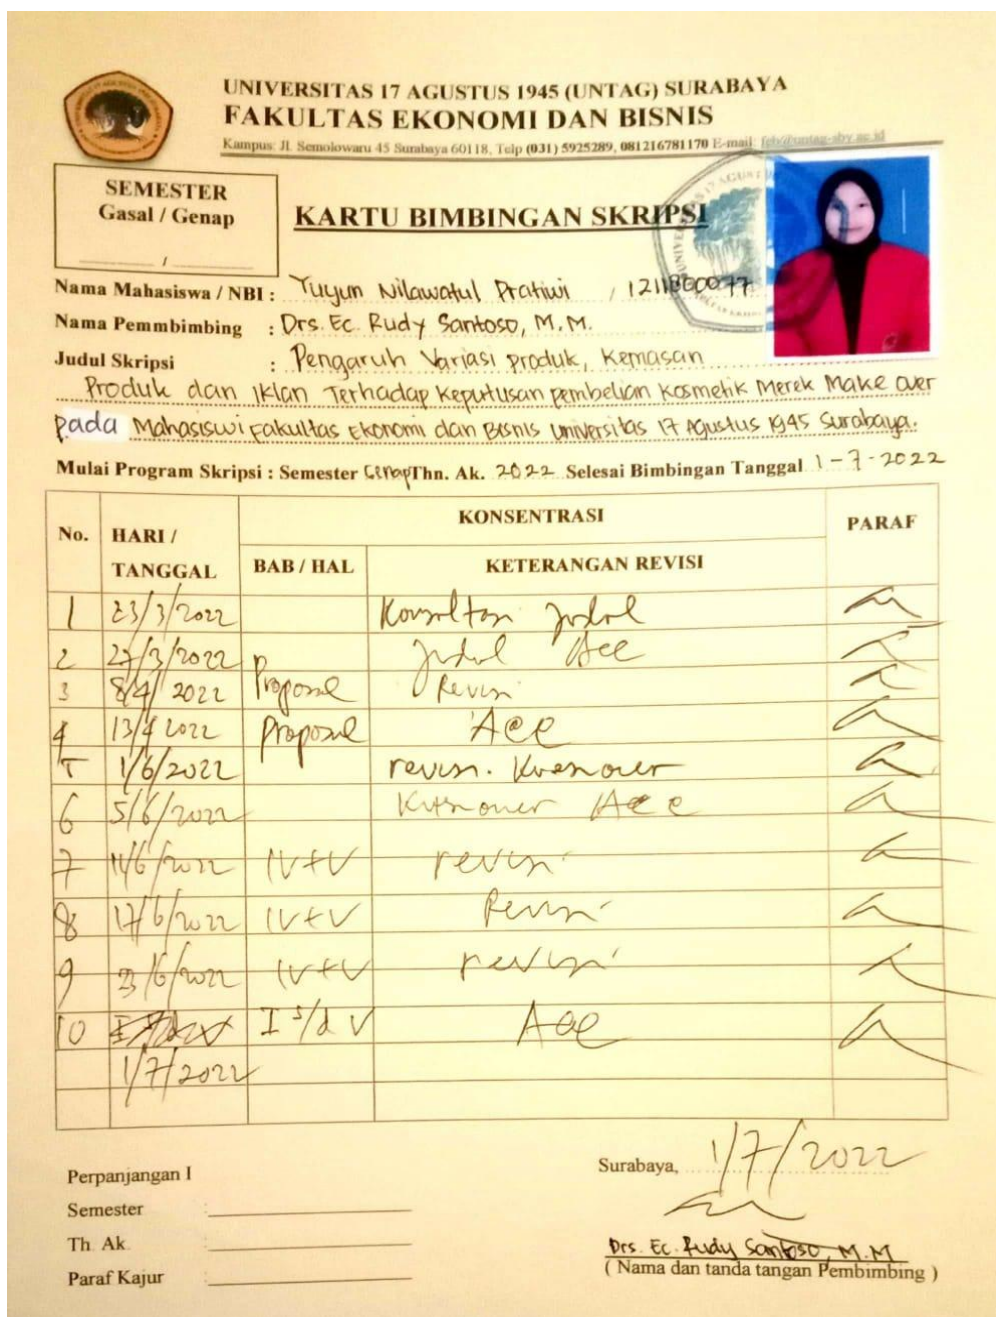 UNIVERSITAS 17 AGUSTUS 1945 (UNTAG) SURABAYA
FAKULTAS EKONOMI DAN BISNIS
Kampus: Jl. Semolowaru 45 Surabaya 60118, Telp (031) 5925289, 081216781170 E-mail: feb@untag-sby.ac.id
SEMESTER
Gasal / Genap
/
KARTU BIMBINGAN SKRIPSI
Nama Mahasiswa / NBI : Yuyun Nilawatul Pratiwi / 1211800077
Nama Pemmbimbing : Drs. Ec. Rudy Santoso, M.M.
Judul Skripsi : Pengaruh Variasi produk, Kemasan
Produk dan Iklan Terhadap Keputusan pembelian Kosmetik Merek Make Over
pada Mahasiswi Fakultas Ekonomi dan Bisnis Universitas 17 Agustus 1945 Surabaya.
Mulai Program Skripsi : Semester Genap Thn. Ak. 2022 Selesai Bimbingan Tanggal 1-7-2022
No. HARI / TANGGAL KONSENTRASI PARAF
BAB / HAL KETERANGAN REVISI
1 23/3/2022 Konsultasi Judul
2 27/3/2022 Judul Acc
3 8/4/2022 Proposal Revisi
4 13/4 2022 Proposal Acc
5 1/6/2022 revisi. Kuesioner
6 5/6/2022 Kuesioner Acc
7 11/6/2022 IV+V revisi
8 17/6/2022 IV+V Revisi
9 23/6/2022 IV+V revisi
10 I s/d V Acc
1/7/2022
Perpanjangan I
Semester :
Th. Ak. :
Paraf Kajur :
Surabaya, 1/7/2022
Drs. Ec. Rudy Santoso, M.M
( Nama dan tanda tangan Pembimbing )